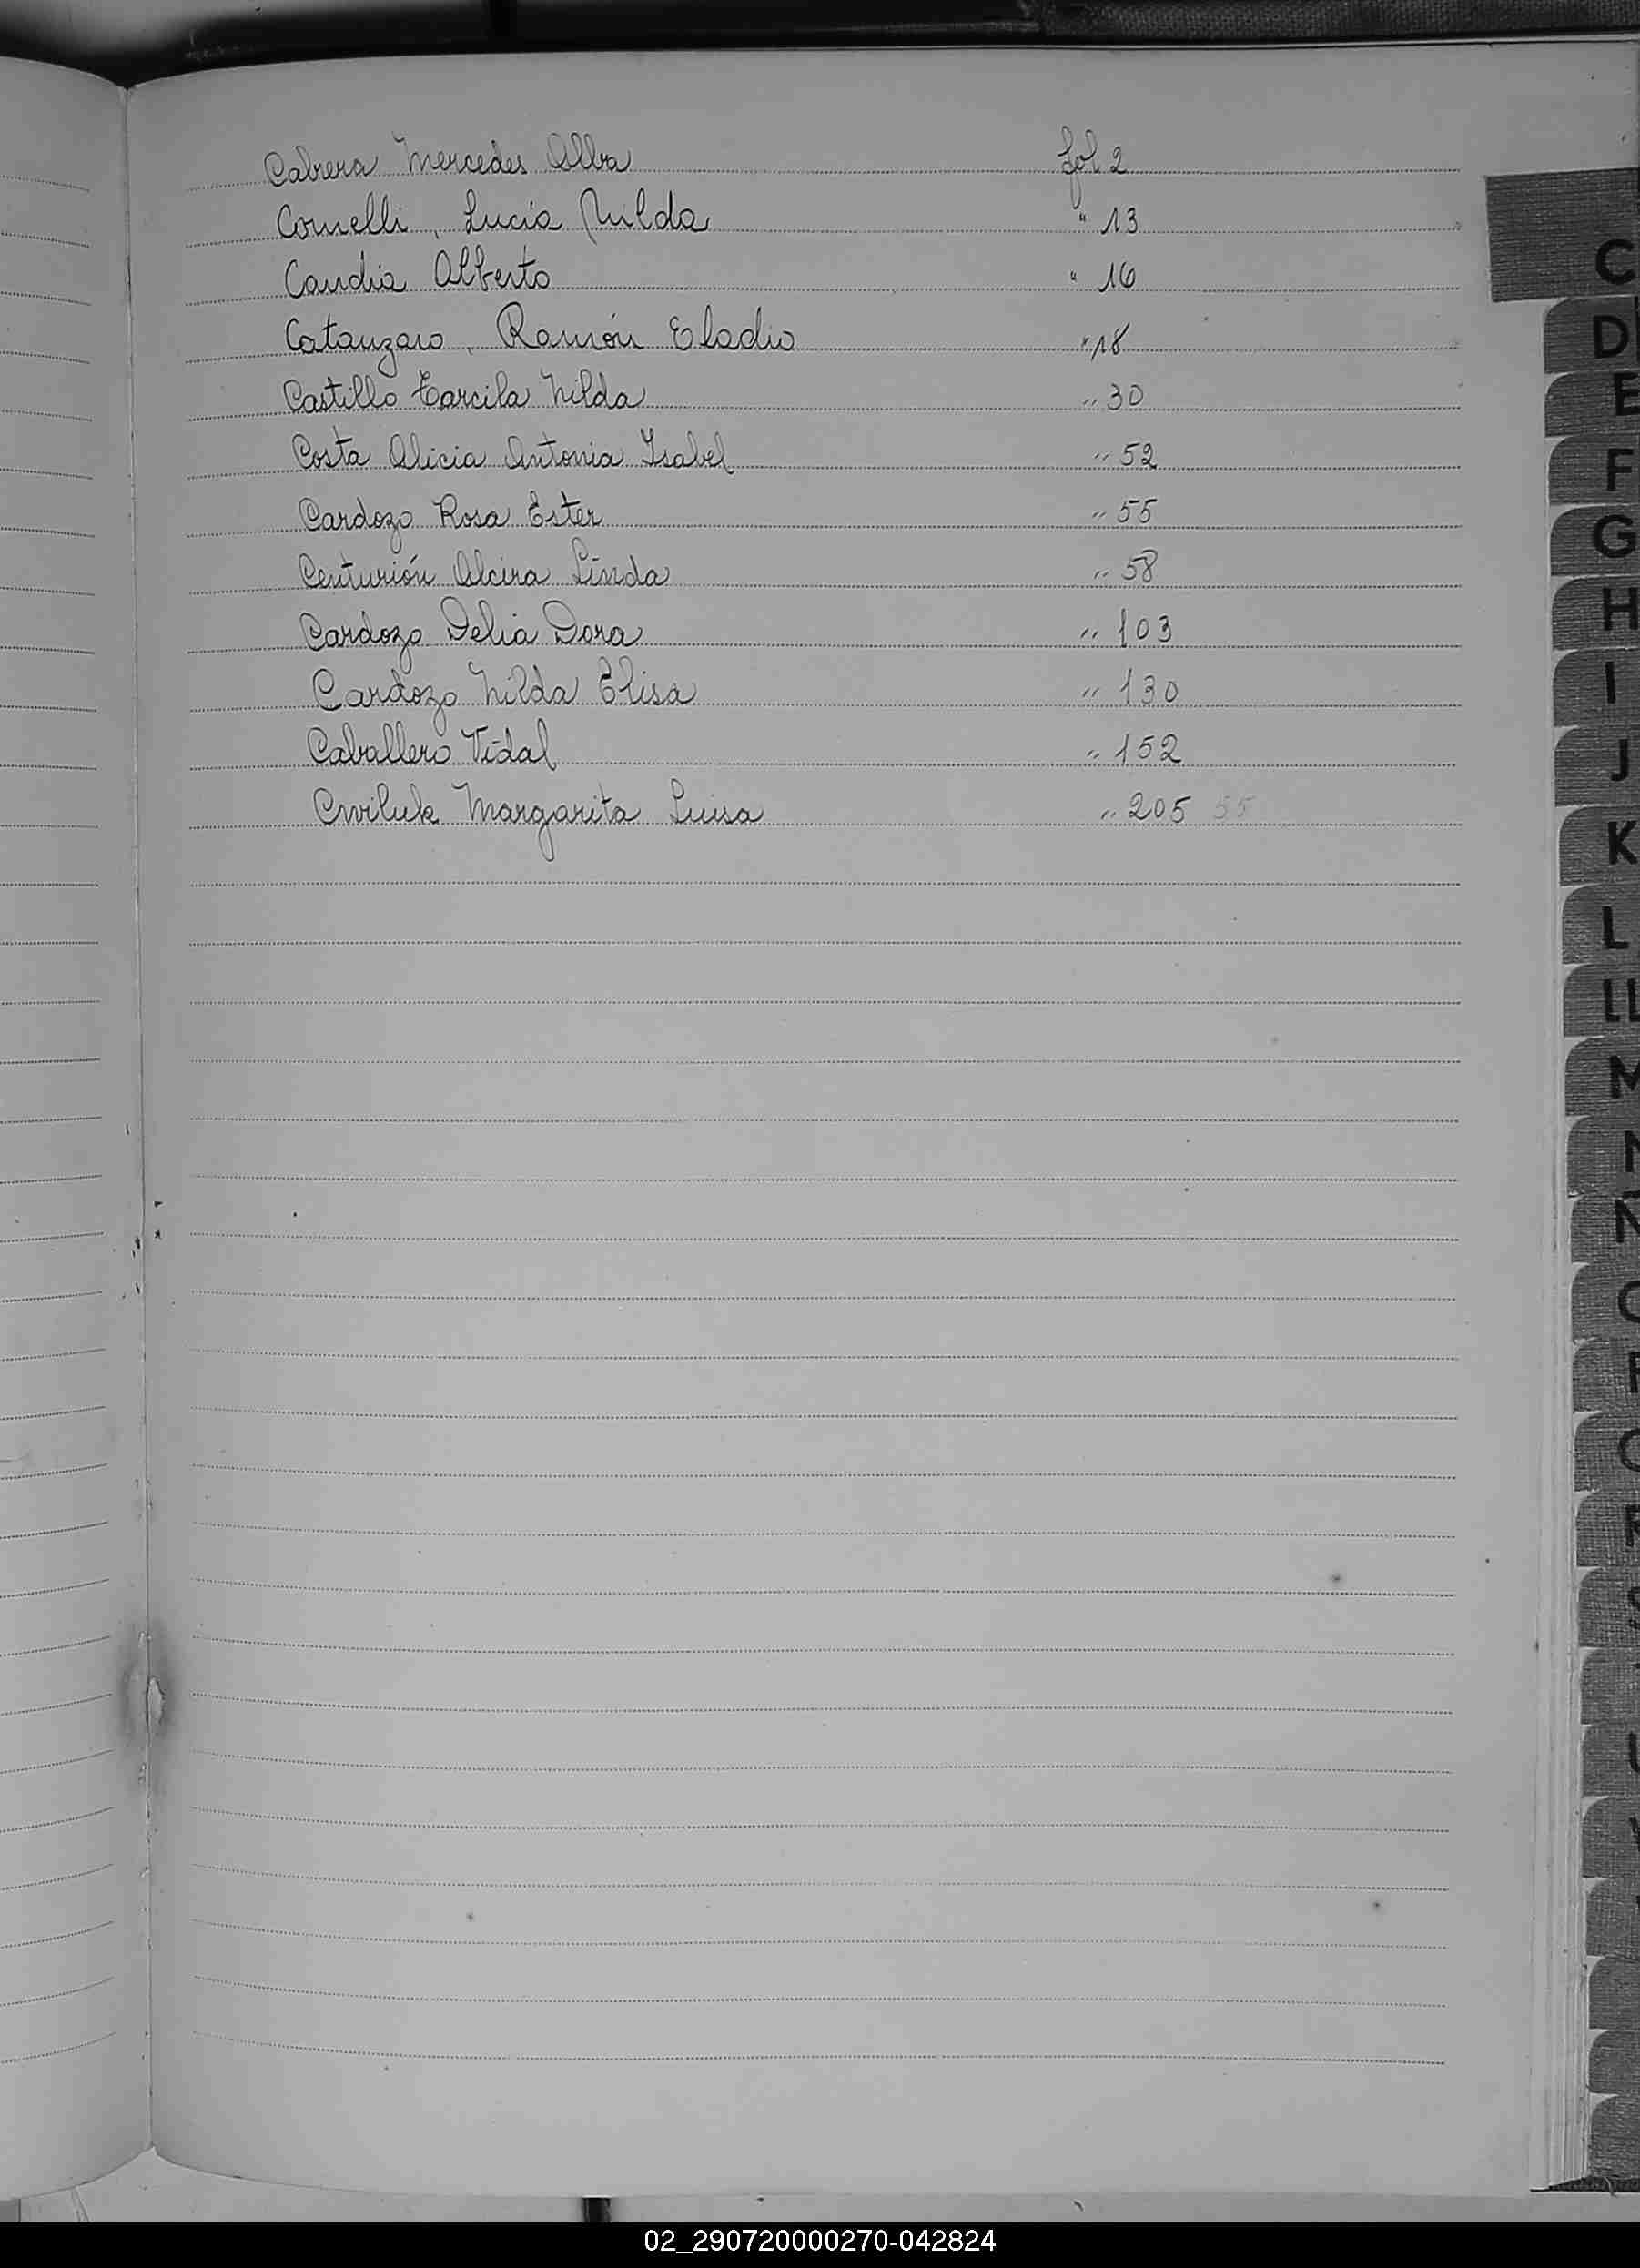 Cabrera Mercedes Alba fol 2
Comelli, Lucía Nilda " 13
Candia Alberto " 16
Catanzaro, Ramón Eladio " 18
Castillo Tarcila Nilda " 30
Costa Alicia Antonia Isabel " 52
Cardozo Rosa Ester " 55
Centurión Alcira Linda " 58
Cardozo Delia Dora " 103
Cardozo Nilda Elisa " 130
Caballero Vidal " 152
Cwiluk Margarita Luisa " 205 55
C
D
E
F
G
H
I
J
K
L
LL
M
N
Ñ
O
P
Q
R
S
U
V
02_290720000270-042824